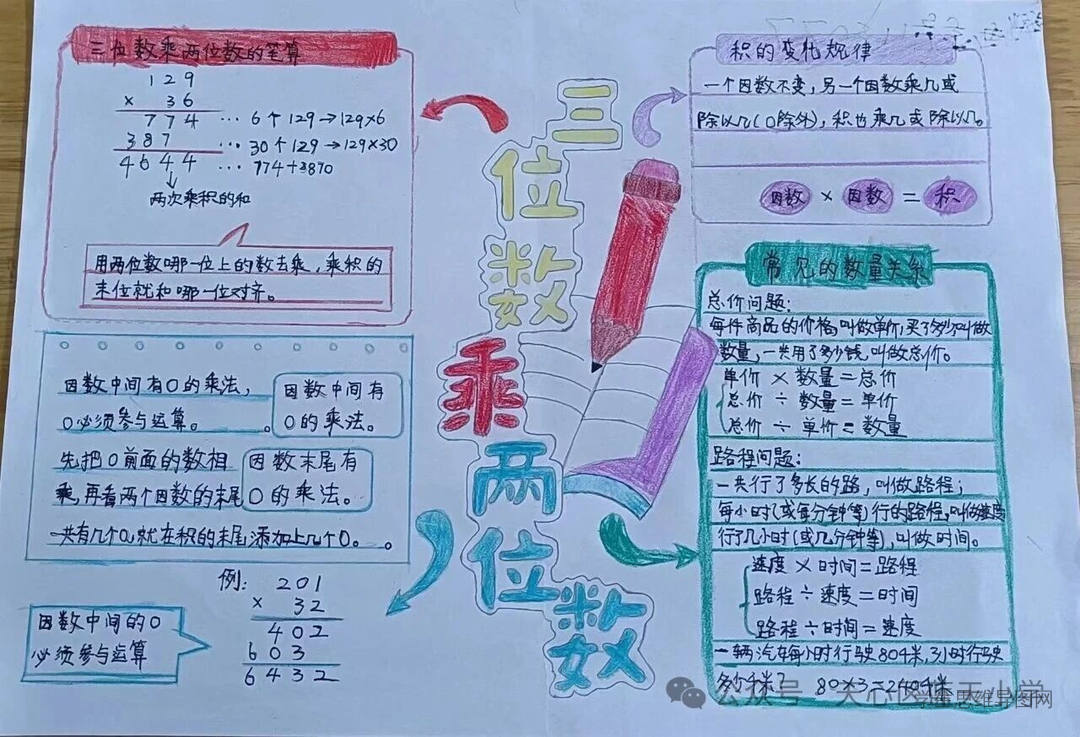 三位数乘两位数的笔算
129
× 36
774 … 6个129→129×6
387 … 30个129→129×30
4644 … 774+3870
两次乘积的和
用两位数哪一位上的数去乘，乘积的
末位就和哪一位对齐。
因数中间有0的乘法，
0必须参与运算。
因数中间有
0的乘法。
先把0前面的数相
乘，再看两个因数的末尾
一共有几个0，就在积的末尾添加上几个0。
因数末尾有
0的乘法。
因数中间的0
必须参与运算
例：201
× 32
402
603
6432
三位数乘两位数
积的变化规律
一个因数不变，另一个因数乘几或
除以几(0除外)，积也乘几或除以几。
因数 × 因数 = 积
常见的数量关系
总价问题：
每件商品的价格，叫做单价，买了多少叫做
数量，一共用了多少钱，叫做总价。
单价 × 数量 = 总价
总价 ÷ 数量 = 单价
总价 ÷ 单价 = 数量
路程问题：
一共行了多长的路，叫做路程；
每小时(或每分钟等)行的路程，叫做速度
行了几小时(或几分钟等)，叫做时间。
速度 × 时间 = 路程
路程 ÷ 速度 = 时间
路程 ÷ 时间 = 速度
一辆汽车每小时行驶804米，3小时行驶
多少千米？
公众号
思维导图网